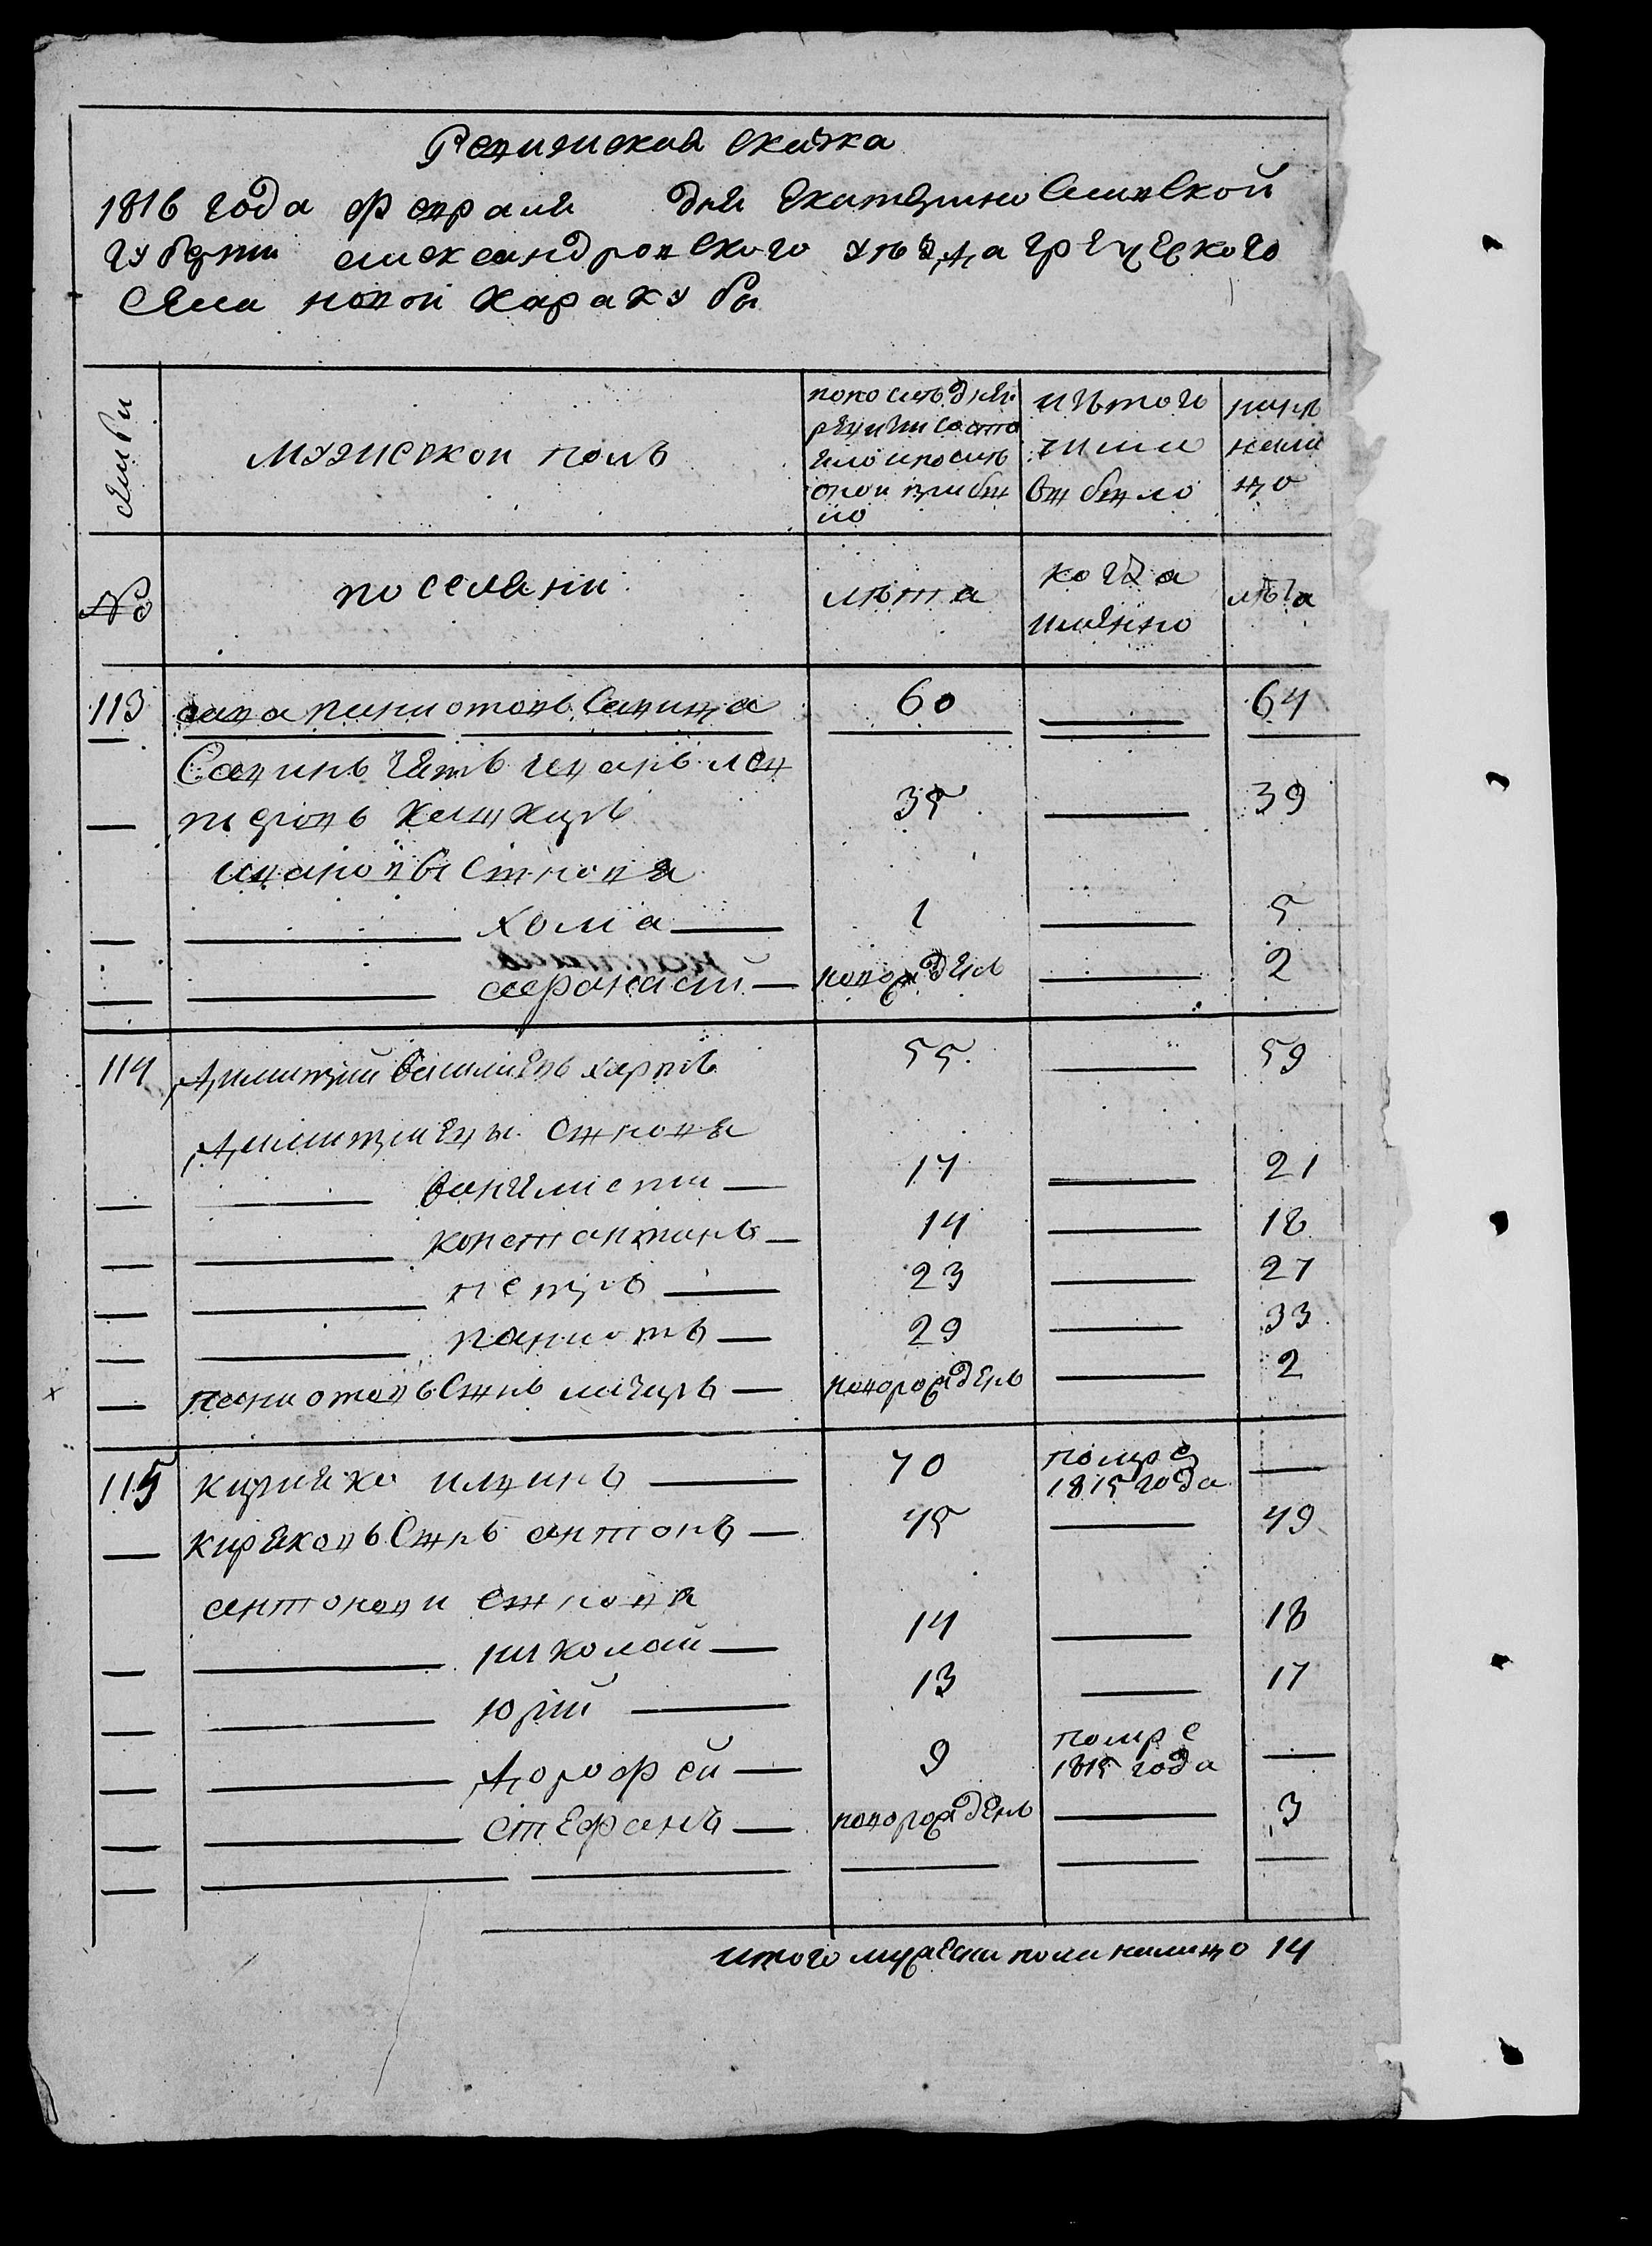 Ревизиская скаска
1816 года Февраля дня Екатериославской
губерни александровского уезда греческого
села новой каракубы
семьи
мужиской полъ
по последней
ревизии состо
яло и после
оной прибы
ло
изъ того
числа
выбыло
ныне
нали
цо
№
поселяни
лѣта
когда
имянно
лѣта
113 сава паниотовъ савита 60 — 64
Савинъ зять иванъ лев
теровъ 35 — 39
ивановы сынове
хома — 1 — 5
афанасий — новорожденъ — 2
114 Димитрий василиевъ карпъ 55 — 59
Димитриевы сынове
17 — 21
константинъ — 14 — 18
петръ — 23 — 27
паниотъ — 29 — 33
паниотовъ сынъ лазаръ — новорожденъ — 2
115 кирияко илвинъ — 70 помре
1815 года —
кирияковъ сынъ антонъ — 45 — 49
антонови сынове
николай — 14 — 18
юрий — 13 — 17
дорофей — 9 помре
1815 года —
стефанъ — новорожденъ — 3
итого мужески пола налицо 14